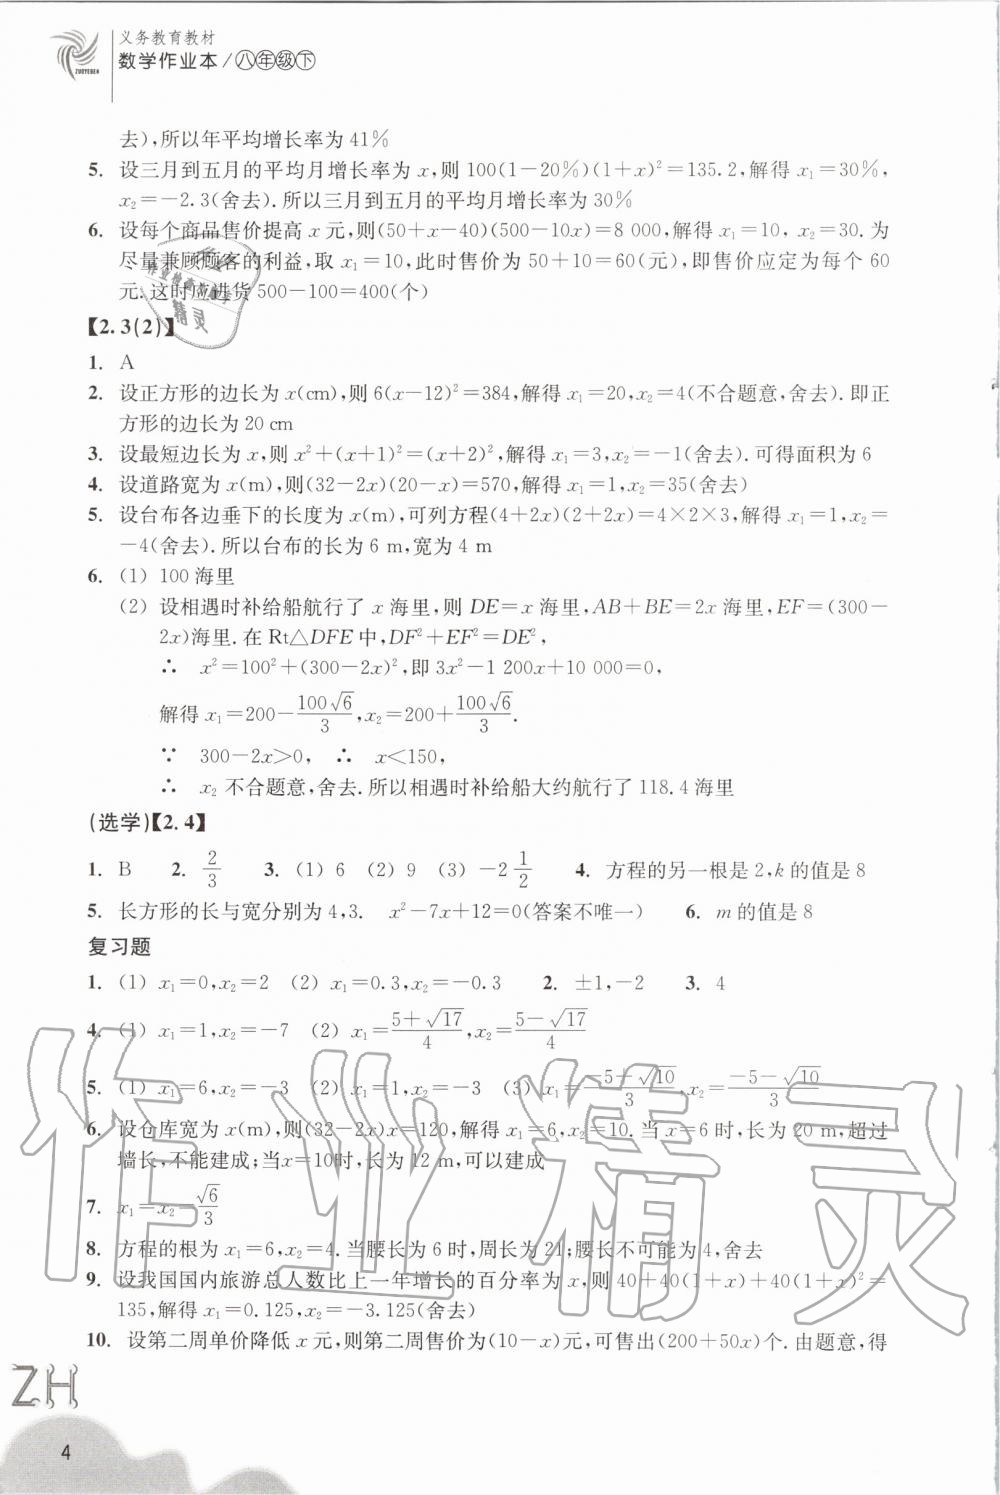 义务教育教材
数学作业本/八年级下
ZUOYEBEN
去),所以年平均增长率为 41%
5. 设三月到五月的平均月增长率为 x,则 100(1－20%)(1＋x)²＝135.2,解得 x₁＝30%,
x₂＝－2.3(舍去).所以三月到五月的平均月增长率为 30%
6. 设每个商品售价提高 x 元,则(50＋x－40)(500－10x)＝8 000,解得 x₁＝10, x₂＝30.为
尽量兼顾顾客的利益,取 x₁＝10,此时售价为 50＋10＝60(元),即售价应定为每个 60
元.这时应进货 500－100＝400(个)
【2.3(2)】
1. A
2. 设正方形的边长为 x(cm),则 6(x－12)²＝384,解得 x₁＝20,x₂＝4(不合题意,舍去).即正
方形的边长为 20 cm
3. 设最短边长为 x,则 x²＋(x＋1)²＝(x＋2)²,解得 x₁＝3,x₂＝－1(舍去).可得面积为 6
4. 设道路宽为 x(m),则(32－2x)(20－x)＝570,解得 x₁＝1,x₂＝35(舍去)
5. 设台布各边垂下的长度为 x(m),可列方程(4＋2x)(2＋2x)＝4×2×3,解得 x₁＝1,x₂＝
－4(舍去).所以台布的长为 6 m,宽为 4 m
6. (1) 100 海里
(2) 设相遇时补给船航行了 x 海里,则 DE＝x 海里,AB＋BE＝2x 海里,EF＝(300－
2x)海里.在 Rt△DFE 中,DF²＋EF²＝DE²,
∴ x²＝100²＋(300－2x)²,即 3x²－1 200x＋10 000＝0,
解得 x₁＝200－100√6/3,x₂＝200＋100√6/3.
∵ 300－2x>0, ∴ x<150,
∴ x₂ 不合题意,舍去.所以相遇时补给船大约航行了 118.4 海里
(选学)【2.4】
1. B 2. 2/3 3. (1) 6 (2) 9 (3) －2 1/2 4. 方程的另一根是 2,k 的值是 8
5. 长方形的长与宽分别为 4,3. x²－7x＋12＝0(答案不唯一) 6. m 的值是 8
复习题
1. (1) x₁＝0,x₂＝2 (2) x₁＝0.3,x₂＝－0.3 2. ±1,－2 3. 4
4. (1) x₁＝1,x₂＝－7 (2) x₁＝5＋√17/4,x₂＝5－√17/4
5. (1) x₁＝6,x₂＝－3 (2) x₁＝1,x₂＝－3 (3) x₁＝－5＋√10/3,x₂＝－5－√10/3
6. 设仓库宽为 x(m),则(32－2x)x＝120,解得 x₁＝6,x₂＝10.当 x＝6时,长为 20 m,超过
墙长,不能建成;当x＝10时,长为 12 m,可以建成
7. x₁＝x₂＝√6/3
8. 方程的根为 x₁＝6,x₂＝4.当腰长为 6 时,周长为 21;腰长不可能为 4,舍去
9. 设我国国内旅游总人数比上一年增长的百分率为 x,则 40＋40(1＋x)＋40(1＋x)²＝
135,解得 x₁＝0.125,x₂＝－3.125(舍去)
10. 设第二周单价降低 x 元,则第二周售价为(10－x)元,可售出(200＋50x)个.由题意,得
作业精灵
ZH
4